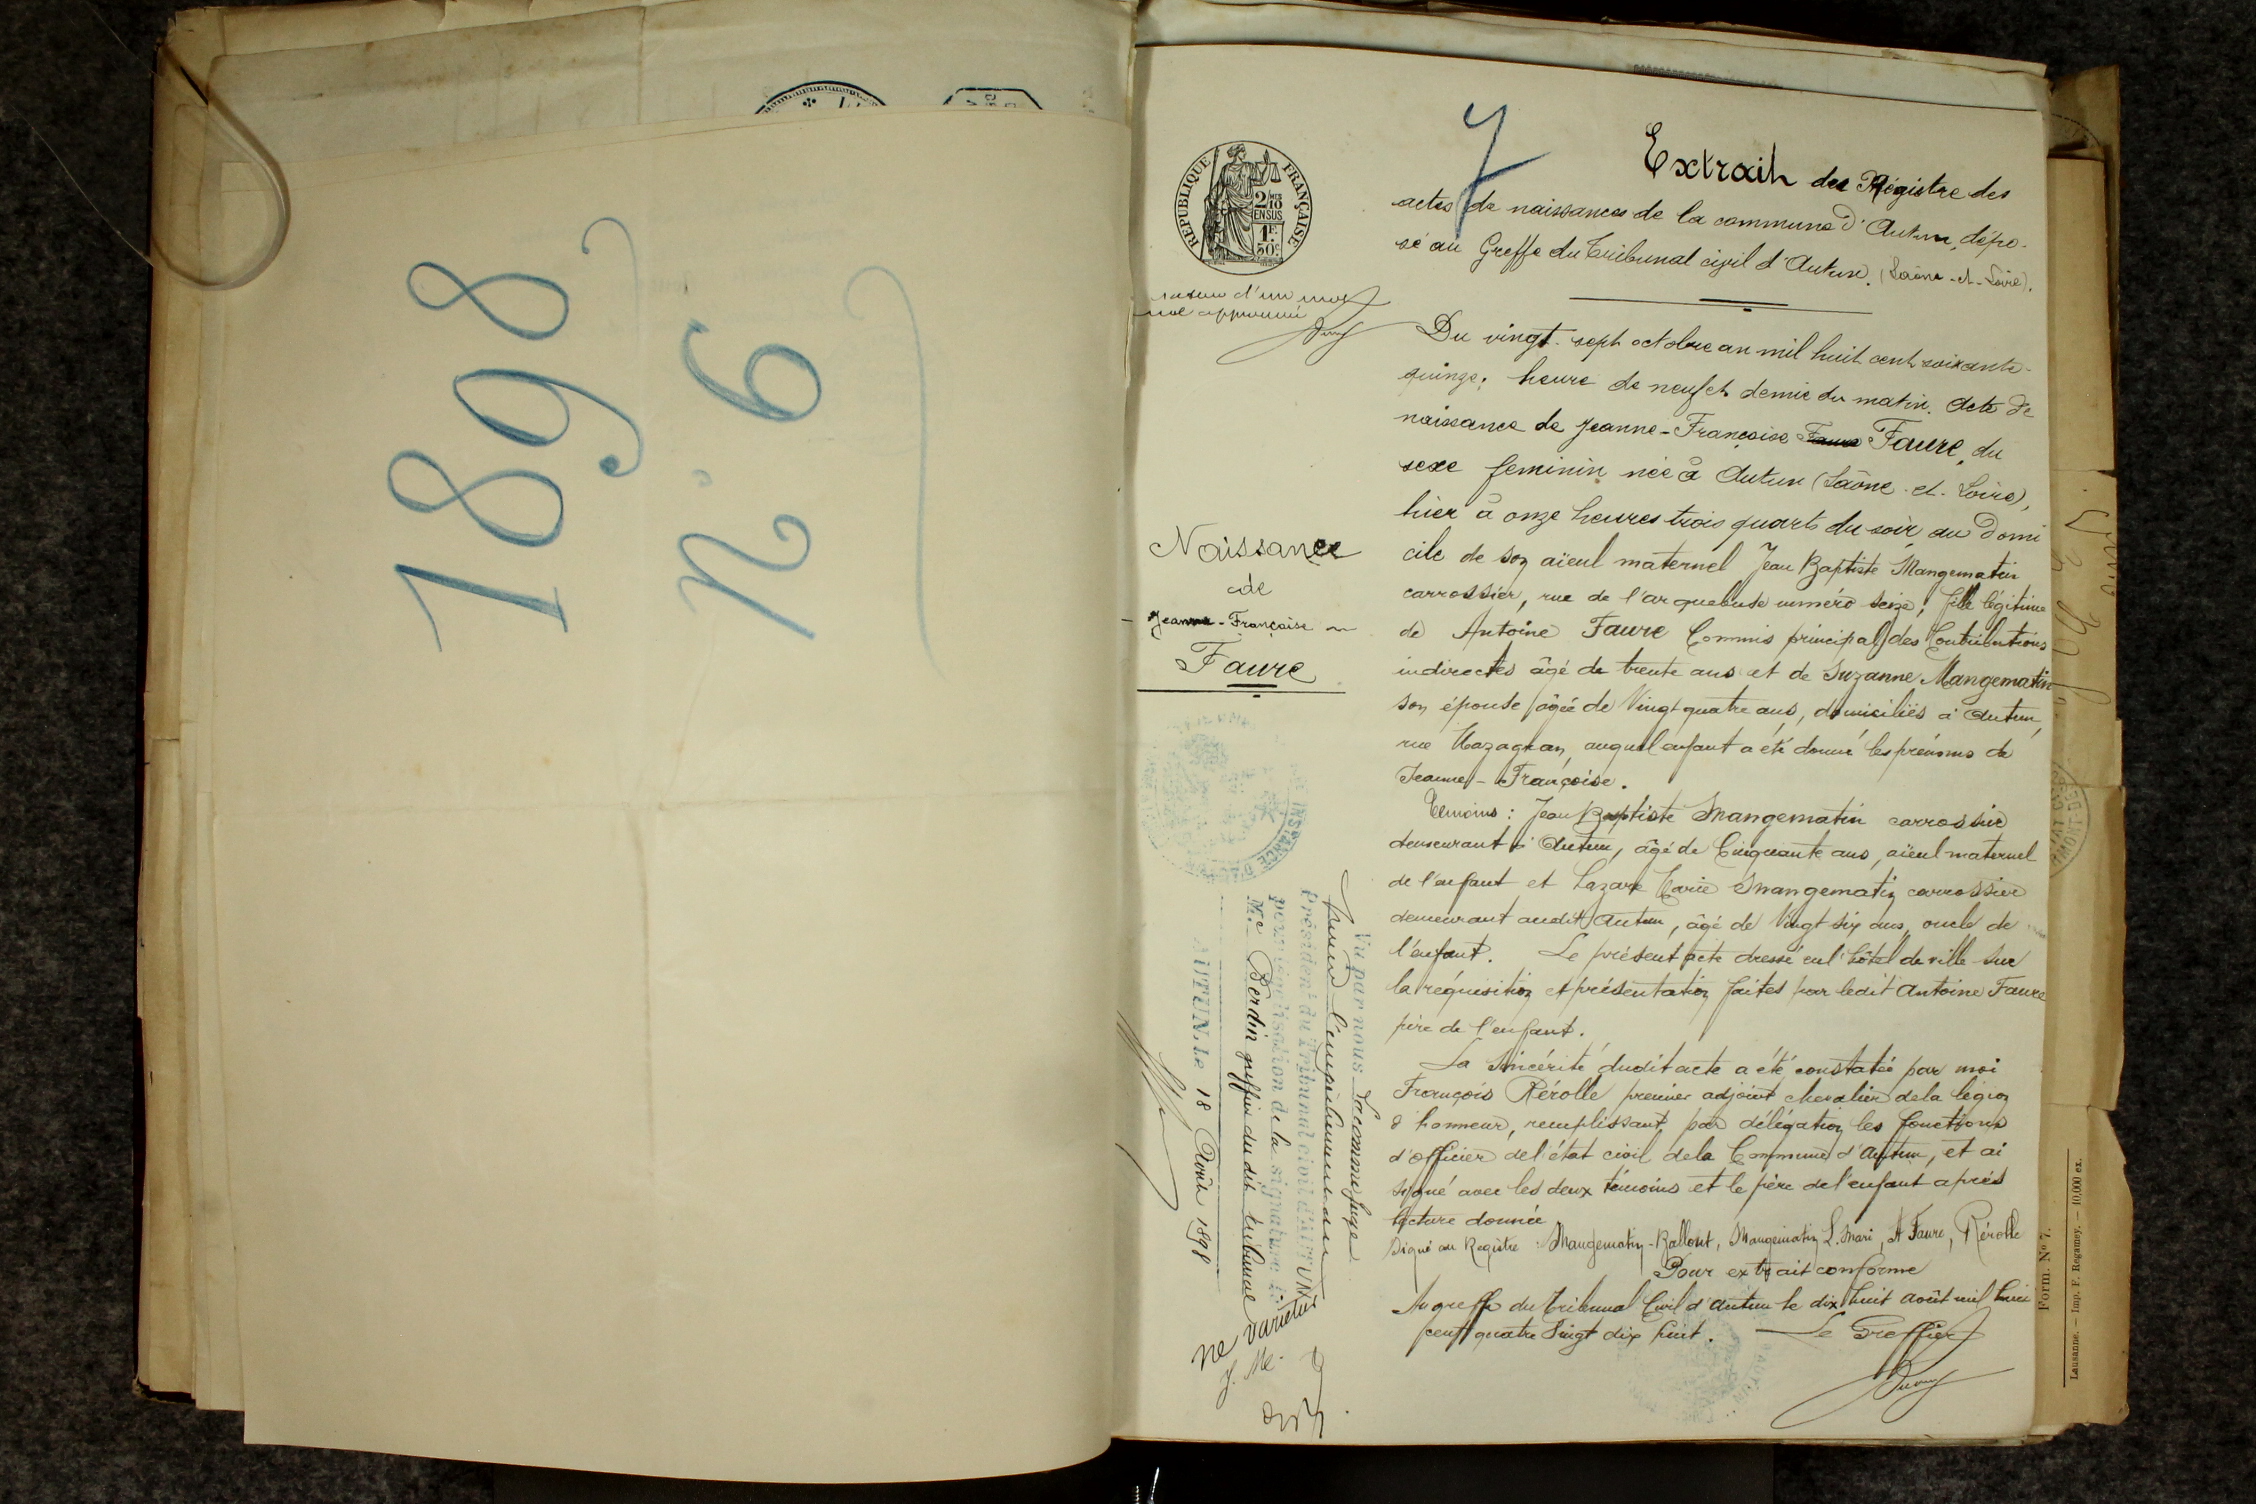 1898
N. 6
7
RÉPUBLIQUE FRANÇAISE
2/10
EN SUS
1F.
50c.
Extrait des Régistre des
actes de naissances de la commune d'Autun, dépo-
sé au Greffe du Tribunal civil d'Autun. (Saône-et-Loire).
rature d'un mot
nul approuvé
Du vingt-sept octobre an mil huit cent soixante-
quinze, heure de neuf et demie du matin. Acte de
naissance de Jeanne-Françoise Faure Faure, du
sexe feminin née à Autun (Saône-et-Loire),
hier à onze heures trois quarts du soir, au domi
cile de son aïeul maternel Jean Baptiste Mangematin
carrossier, rue de l'arquebuse numéro seize, fille légitime
de Antoine Faure Commis principal des Contributions
indirectes âgé de trente ans et de Suzanne Mangematin
son épouse âgée de Vingt quatre ans, domiciliés à Autun,
rue Mazagran, auquel enfant a été donné les prénoms de
Jeanne-Françoise.
Témoins : Jean Baptiste Mangematin carrossier
demeurant à Autun, âgé de Cinquante ans, aïeul maternel
de l'enfant et Lazare Marie Mangematin carrossier
demeurant audit Autun, âgé de Vingt six ans, oncle de
l'enfant. Le présent acte dressé en l'hôtel de ville sur
la réquisition et présentation faites par ledit Antoine Faure
père de l'enfant.
La sincérité dudit acte a été constatée par moi
François Rérolle premier adjoint chevalier de la légion
d'honneur, remplissant par délégation les fonctions
d'officier de l'état civil de la Commune d'Autun, et ai
signé avec les deux témoins et le père de l'enfant après
lecture donnée
Signé au Registre : Mangematin-Ballout, Mangematin L. Mari, A Faure, Rérolle
Pour extrait conforme
Au greffe du Tribunal Civil d'Autun le dix huit août mil huit
cent quatre Vingt dix huit. Le Greffier
Naissance
de
Jeanne-Françoise
Faure
INSTANCE D'AUTUN
Vu par nous
pour l'empêchement du
Président du Tribunal civil d'AUTUN
pour légalisation de la signature de
Me Perdin greffier du dit tribunal
AUTUN, le 18 Août 1898
ne varietur
Form. No 7.
Lausanne. — Imp. F. Regamey. — 10,000 ex.